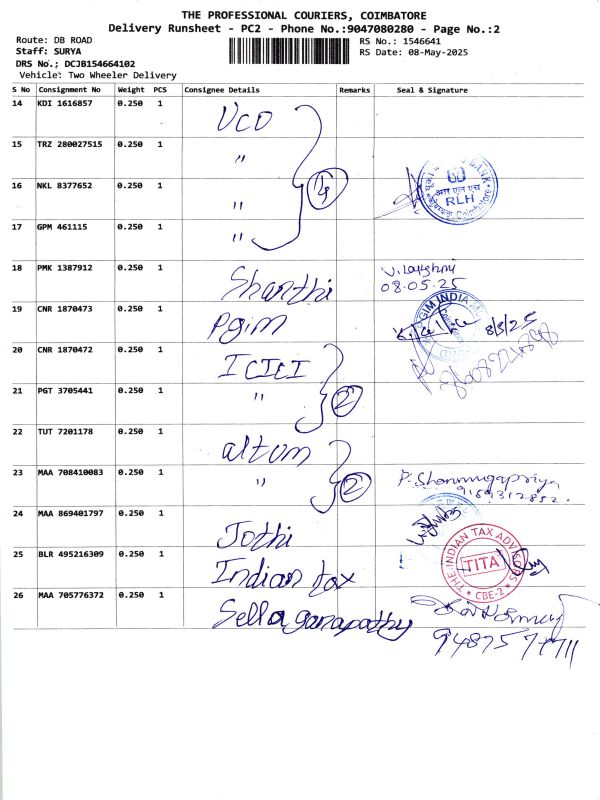 THE PROFESSIONAL COURIERS, COIMBATORE
Delivery Runsheet - PC2 - Phone No.:9047080280 - Page No.:2
Route: DB ROAD
Staff: SURYA
DRS No.: DCJB154664102
Vehicle: Two Wheeler Delivery
RS No.: 1546641
RS Date: 08-May-2025
S No Consignment No Weight PCS Consignee Details Remarks Seal & Signature
14 KDI 1616857 0.250 1 UCO
15 TRZ 280027515 0.250 1 "
16 NKL 8377652 0.250 1 " 4
BANK
आर एल एच
RLH
Coimbatore
17 GPM 461115 0.250 1 "
18 PMK 1387912 0.250 1 Shanthi V. Lakshmi
08.05.25
19 CNR 1870473 0.250 1 Pgim 8/5/25
PGIM INDIA
20 CNR 1870472 0.250 1 ICICI
21 PGT 3705441 0.250 1 " 2
22 TUT 7201178 0.250 1 altum
23 MAA 708410083 0.250 1 " 2 P. Shanmugapriya
24 MAA 869401797 0.250 1 Jothi
25 BLR 495216309 0.250 1 Indian tax
THE INDIAN TAX ADVISORS
TITA
CBE-2
26 MAA 705776372 0.250 1 Sella ganapathy